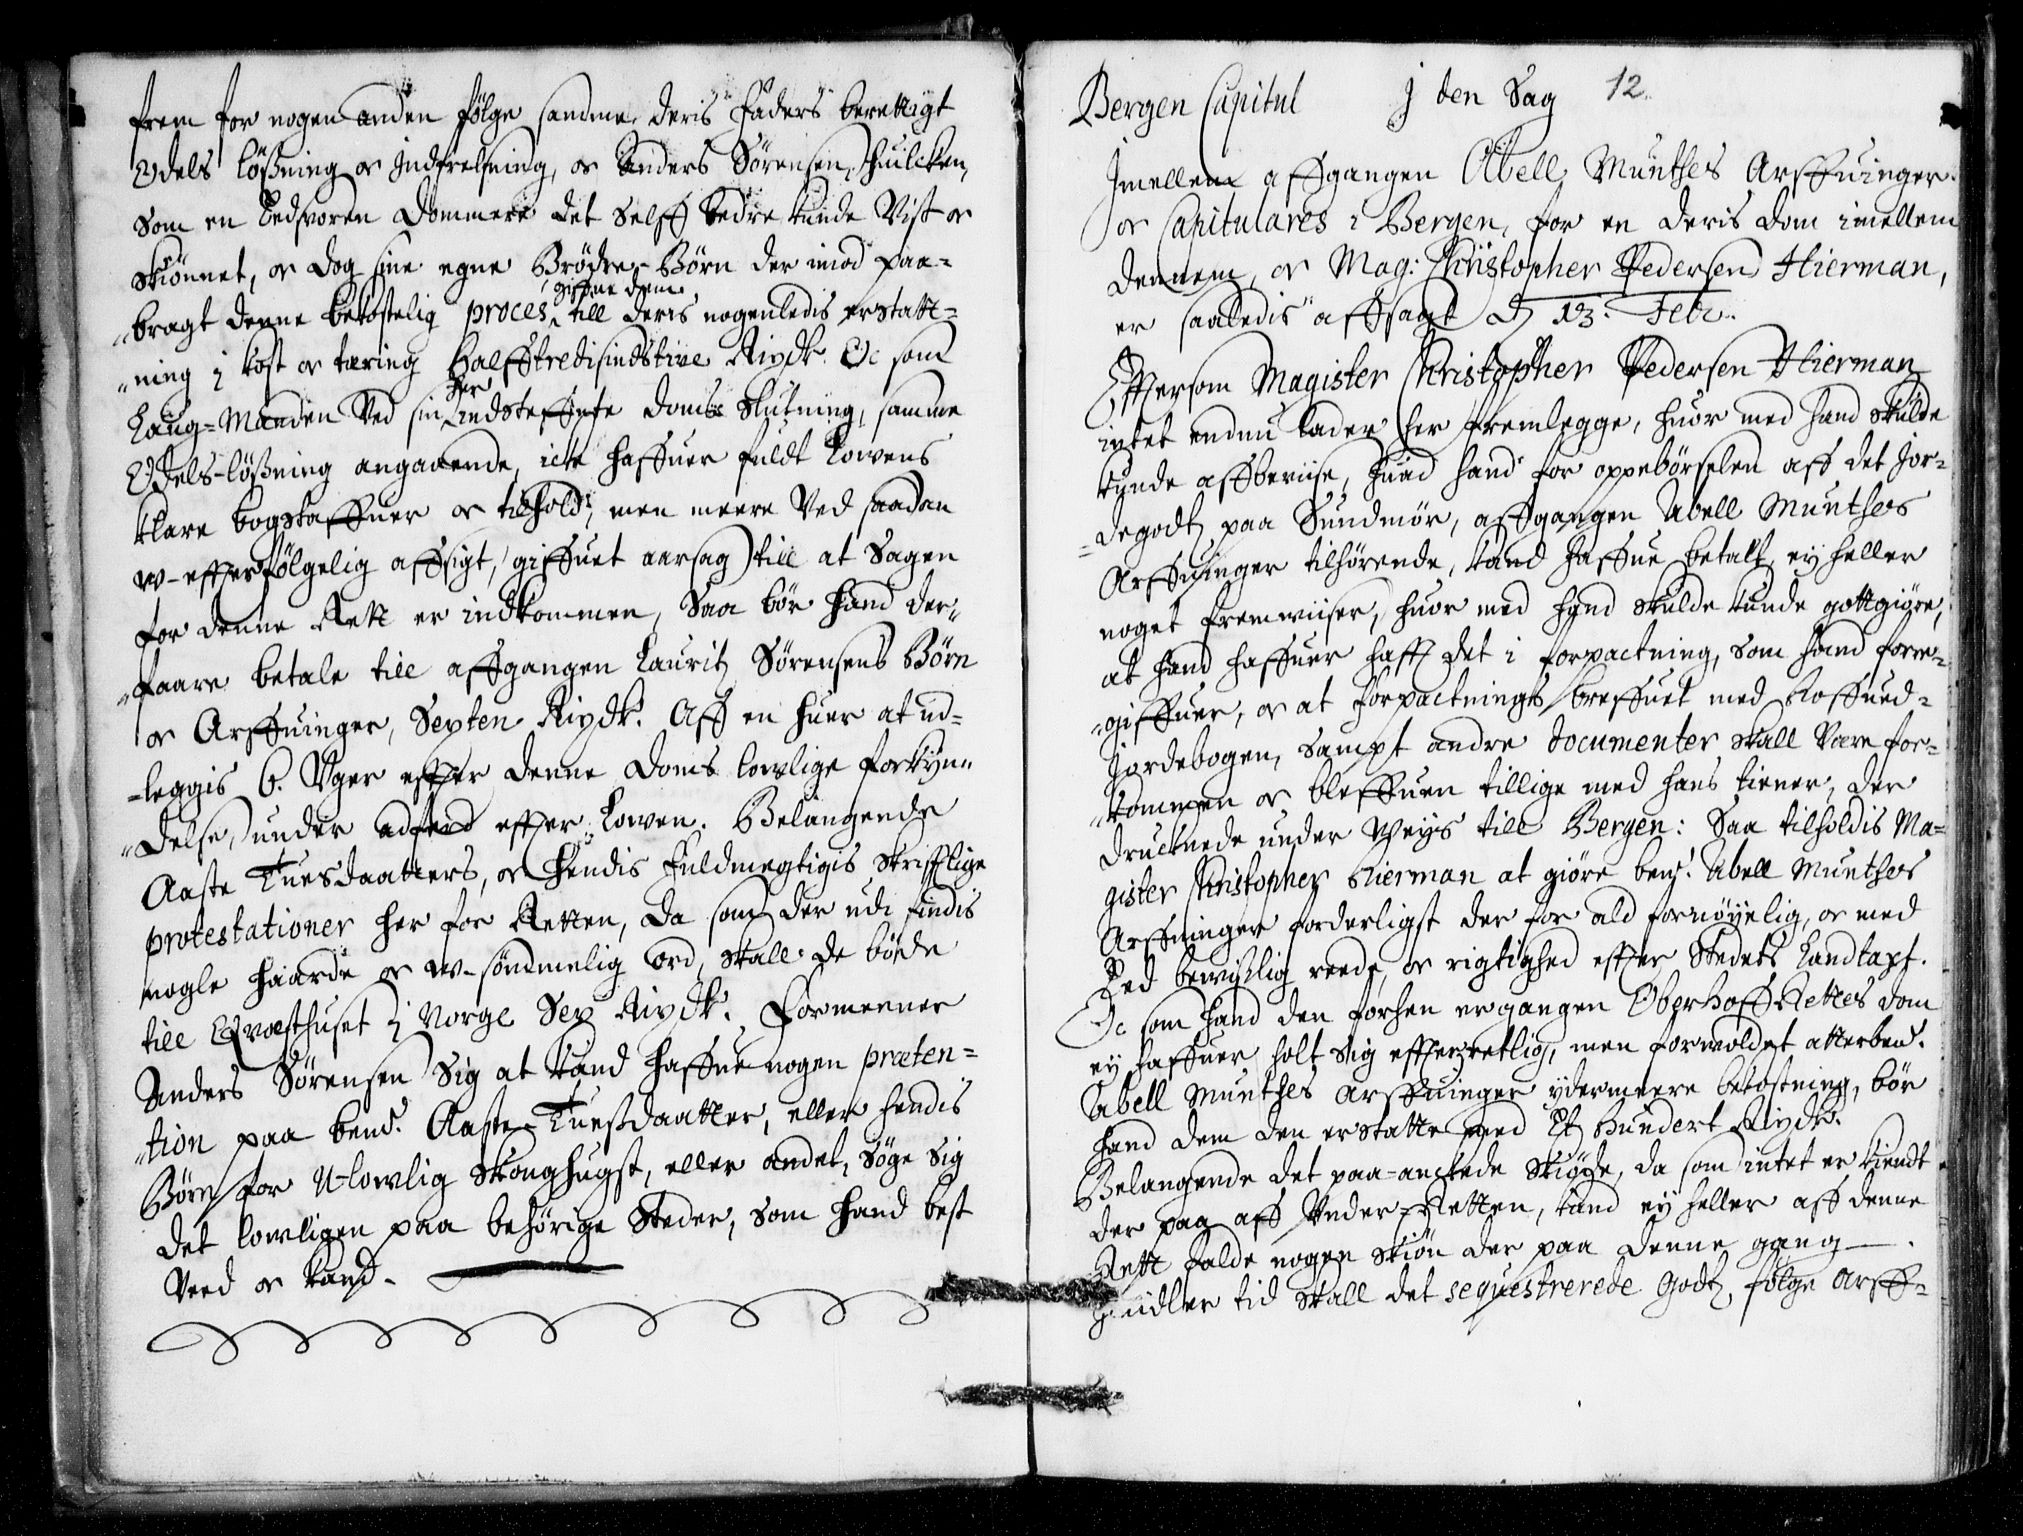 frem for nogen anden følge sandme deris Faders berettigt
Odels lößning oc Indfrelsning, oc Anders Sörensen, huilcken,
som en Eedsvoren Dommere det Selff bedre kunde Vist oc
skiönnet, oc dog sine egne Brödre-Börn der imod paa-
bragt denne bekostelig proces, giffue dem till deris nogenledis erstatt-
ning i kost oc tæring Halfftredisindstive Rixdr. Oc som
Laug-Manden Ved sin her indsteffnte Doms Slutning, samme
Odels-lößning angaaende, icke haffuer fuldt Lowens
klare bogstaffuer oc tilhold, men meere Ved saadan
w-effterfölgelig affsigt, giffuet aarsag till at Sagen
for denne Rett er indkommen, Saa bör hand der-
faare betale till affgangen Lauritz Sörensens Börn
oc Arffuinger, Sexten Rixdr. Aff en huer at ud-
leggis 6. Uger effter denne Doms lowlige forkyn-
delse, under adferd effter Lowen. Belangende
Aaste Tuesdaatters, oc hendis Fuldmegtigis skrifftlige
protestationer her for Retten, da som der udi findis
nogle haarde oc w-sömmelig ord, skall de böde
till Qvæsthuset i Norge Sex Rixdr. Formeener
Anders Sörensen Sig at kand haffue nogen præten-
tion paa bemd. Aaste-Tuesdaatter, eller hendis
Börn for U-lowlig Skoughugst, eller andet, Söge Sig
det lowligen paa behörige Steder, som hand best
Veed oc kand.
Bergen Capitul J den Sag 12.
Jmellem affgangen Abell Munthes Arffuinger
oc Capitulares i Bergen, for en deris dom imellem
dennem, oc Mag: Christopher Pedersen Hierman,
er saaledis affsagt d 13. Febr.
Effersom Magister Christopher Pedersen Hierman
intet endnu lader her fremlegge, huor med hand skulde
kunde affbeviise, huad hand for oppebörselen aff det Jor-
degodtz paa Sundmör, affgangen Abell Munthes
Arffuinger tilhörende, kand haffue betalt, ey heller
noget fremwiiser, huor med hand skulde kunde gottgiöre,
at hand haffuer hafft det i forpactning, som hand fore-
giffuer, oc at forpactnings breffuet med Hoffued-
Jordebogen, sampt andre documenter skall Være for-
kommen oc bleffuen tillige med hans tiener, der
drucknede under Veys till Bergen: Saa tilholdis Ma-
gister Christopher Hierman at giöre bemd. Abell Munthes
Arffuinger forderligst der for ald fornöyelig, oc med
Eed bewislig reede, oc rigtighed effter Stedets Landtaxt.
Oc som hand den forhen ergangen Oberhoff Rettes dom
ey haffuer holt Sig effterretlig, men forvoldet atter bemd.
Abell Munthes Arffuinger ydermeere bekostning, bör
hand dem den erstatte med Et Hundert Rixdr.
Belangende det paa-anckede Skiöde, da som intet er kiendt
der paa aff Under-Retten, kand ey heller aff denne
Rett falde nogen skiön der paa denne gang.
Jmidler tid skall det sequestrerede Godtz, fölge Arff-